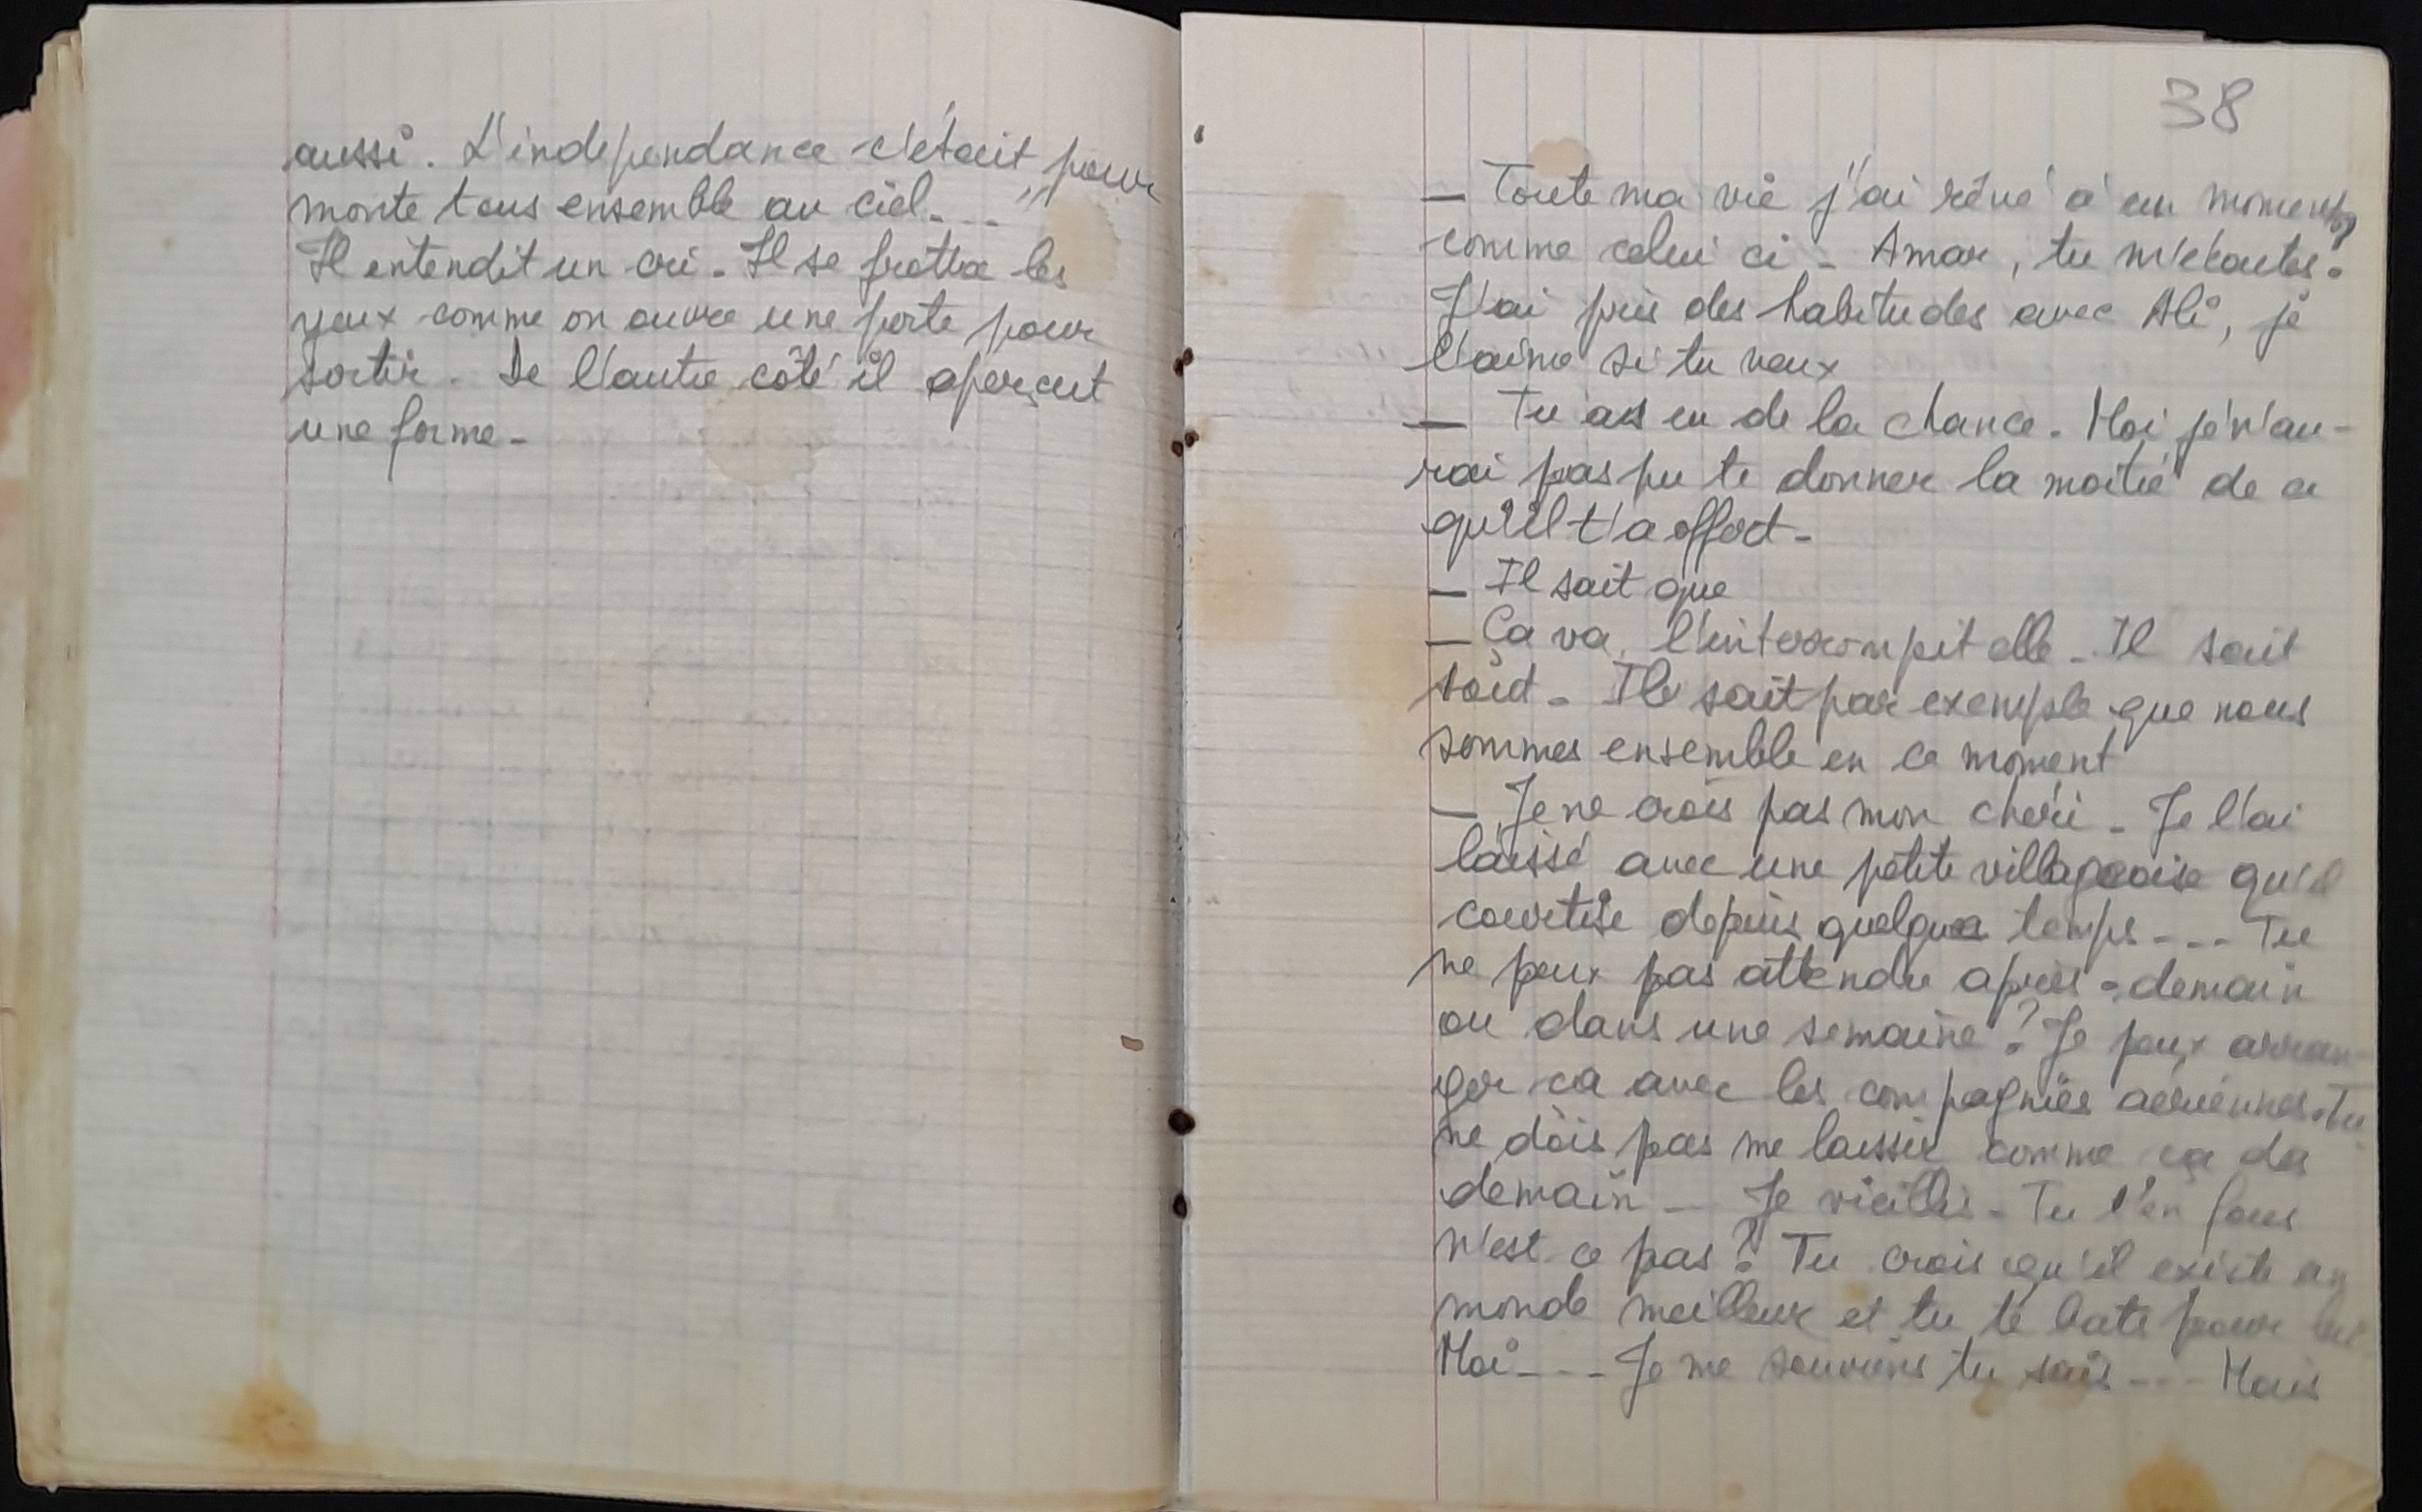 aussi. L'independance c'était pour
monte tous ensemble au ciel...''
Il entendit un cri. Il se frotta les
yeux comme on ouvre une porte pour
sortir. De l'autre côté il aperçut
une forme.
38
— Toute ma vie j'ai rêvé à un moment
comme celui ci. Amar, tu m'écoutes?
J'ai pris des habitudes avec Ali, je
l'aime si tu veux
— Tu as eu de la chance. Moi je n'au-
rai pas pu te donner la moitié de ce
qu'il t'a offert.
— Il sait que
— Ça va, l'interrompit elle. Il sait
. Il sait par exemple que nous
sommes ensemble en ce moment
— Je ne crois pas mon chéri. Je l'ai
laissé avec une petite villageoise qu'il
courtise depuis quelques temps... Tu
ne peux pas attendre après-demain
ou dans une semaine? Je peux arran-
ger ca avec les compagnies aeriennes. Tu
ne dois pas me laisser comme ça des
demain — Je vieillis. Tu t'en fous
n'est ce pas? Tu crois qu'il existe un
monde meilleur et tu te bats pour lui
Moi... Je me souviens tu sais... Mais